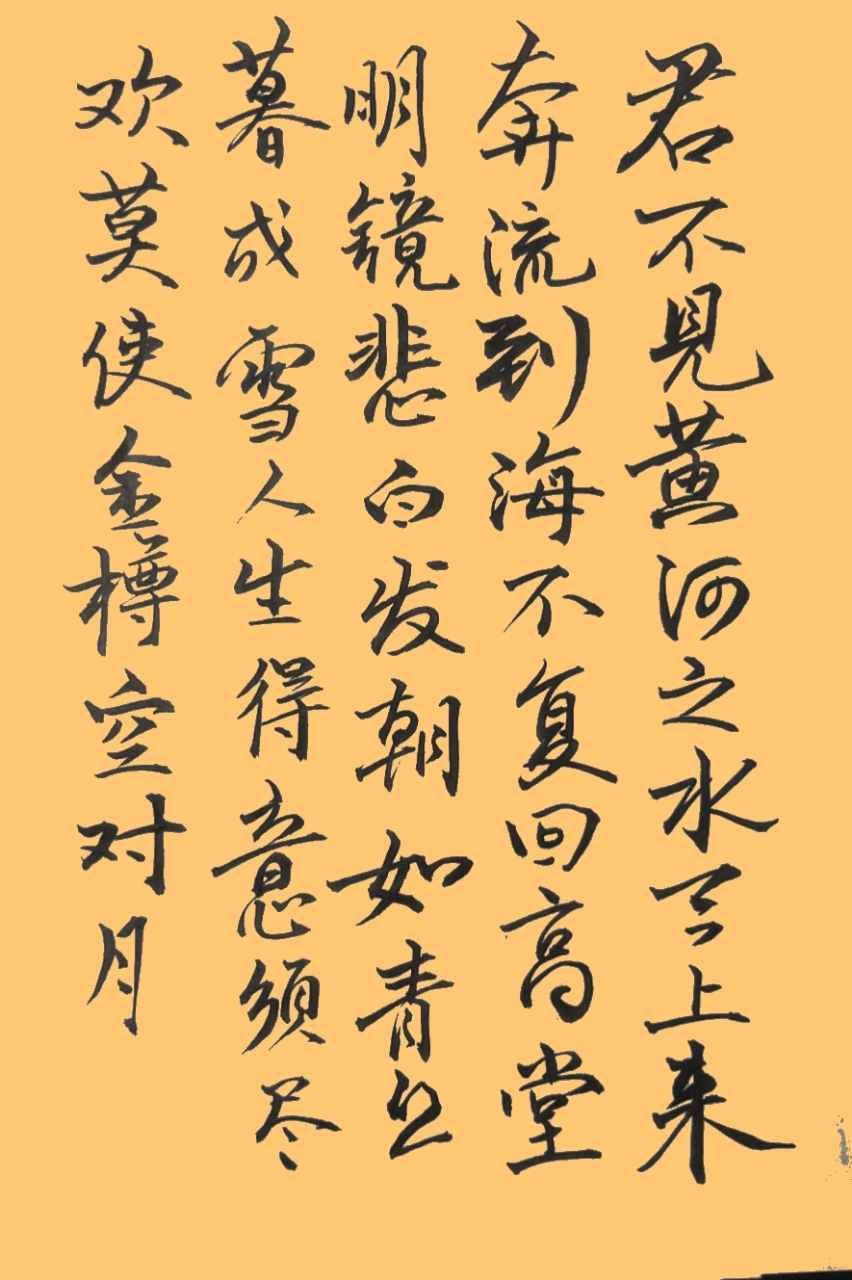 君不見黄河之水天上来
奔流到海不复回高堂
明鏡悲白发朝如青丝
暮成雪人生得意須尽
欢莫使金樽空对月